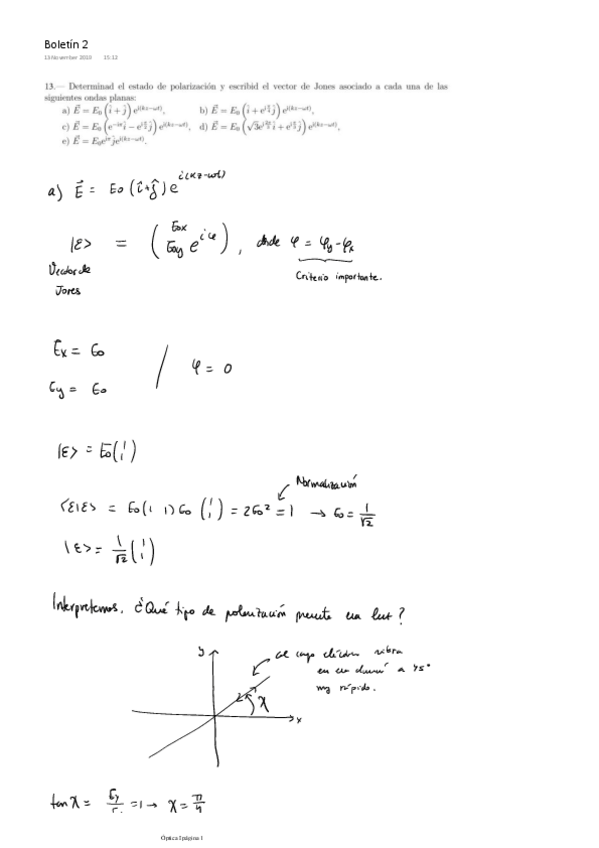 Boletín 2
13 November 2020 15:12
13.— Determinad el estado de polarización y escribid el vector de Jones asociado a cada una de las
siguientes ondas planas:
a) E⃗ = E₀ (î + ĵ) e^{i(kz−ωt)}, b) E⃗ = E₀ (î + e^{iπ/2} ĵ) e^{i(kz−ωt)},
a) E⃗ = E₀ (î+ĵ) e^{i(kz−ωt)}
|ε> = (E₀ₓ E₀y e^{iφ}), donde φ = φy−φx
Vector de
Jones
Criterio importante.
Ex = E₀
Ey = E₀
/ φ = 0
|ε> = E₀ (1 1)
Normalización
<ε|ε> = E₀ (1 1) E₀ (1 1) = 2E₀² = 1 → E₀ = 1/√2
|ε> = 1/√2 (1 1)
Interpretemos. ¿Qué tipo de polarización presenta esa luz?
y
x
χ
el campo eléctrico vibra
a 45°
muy rápido.
tan χ = Ey = 1 → χ = π/4
Óptica I página 1